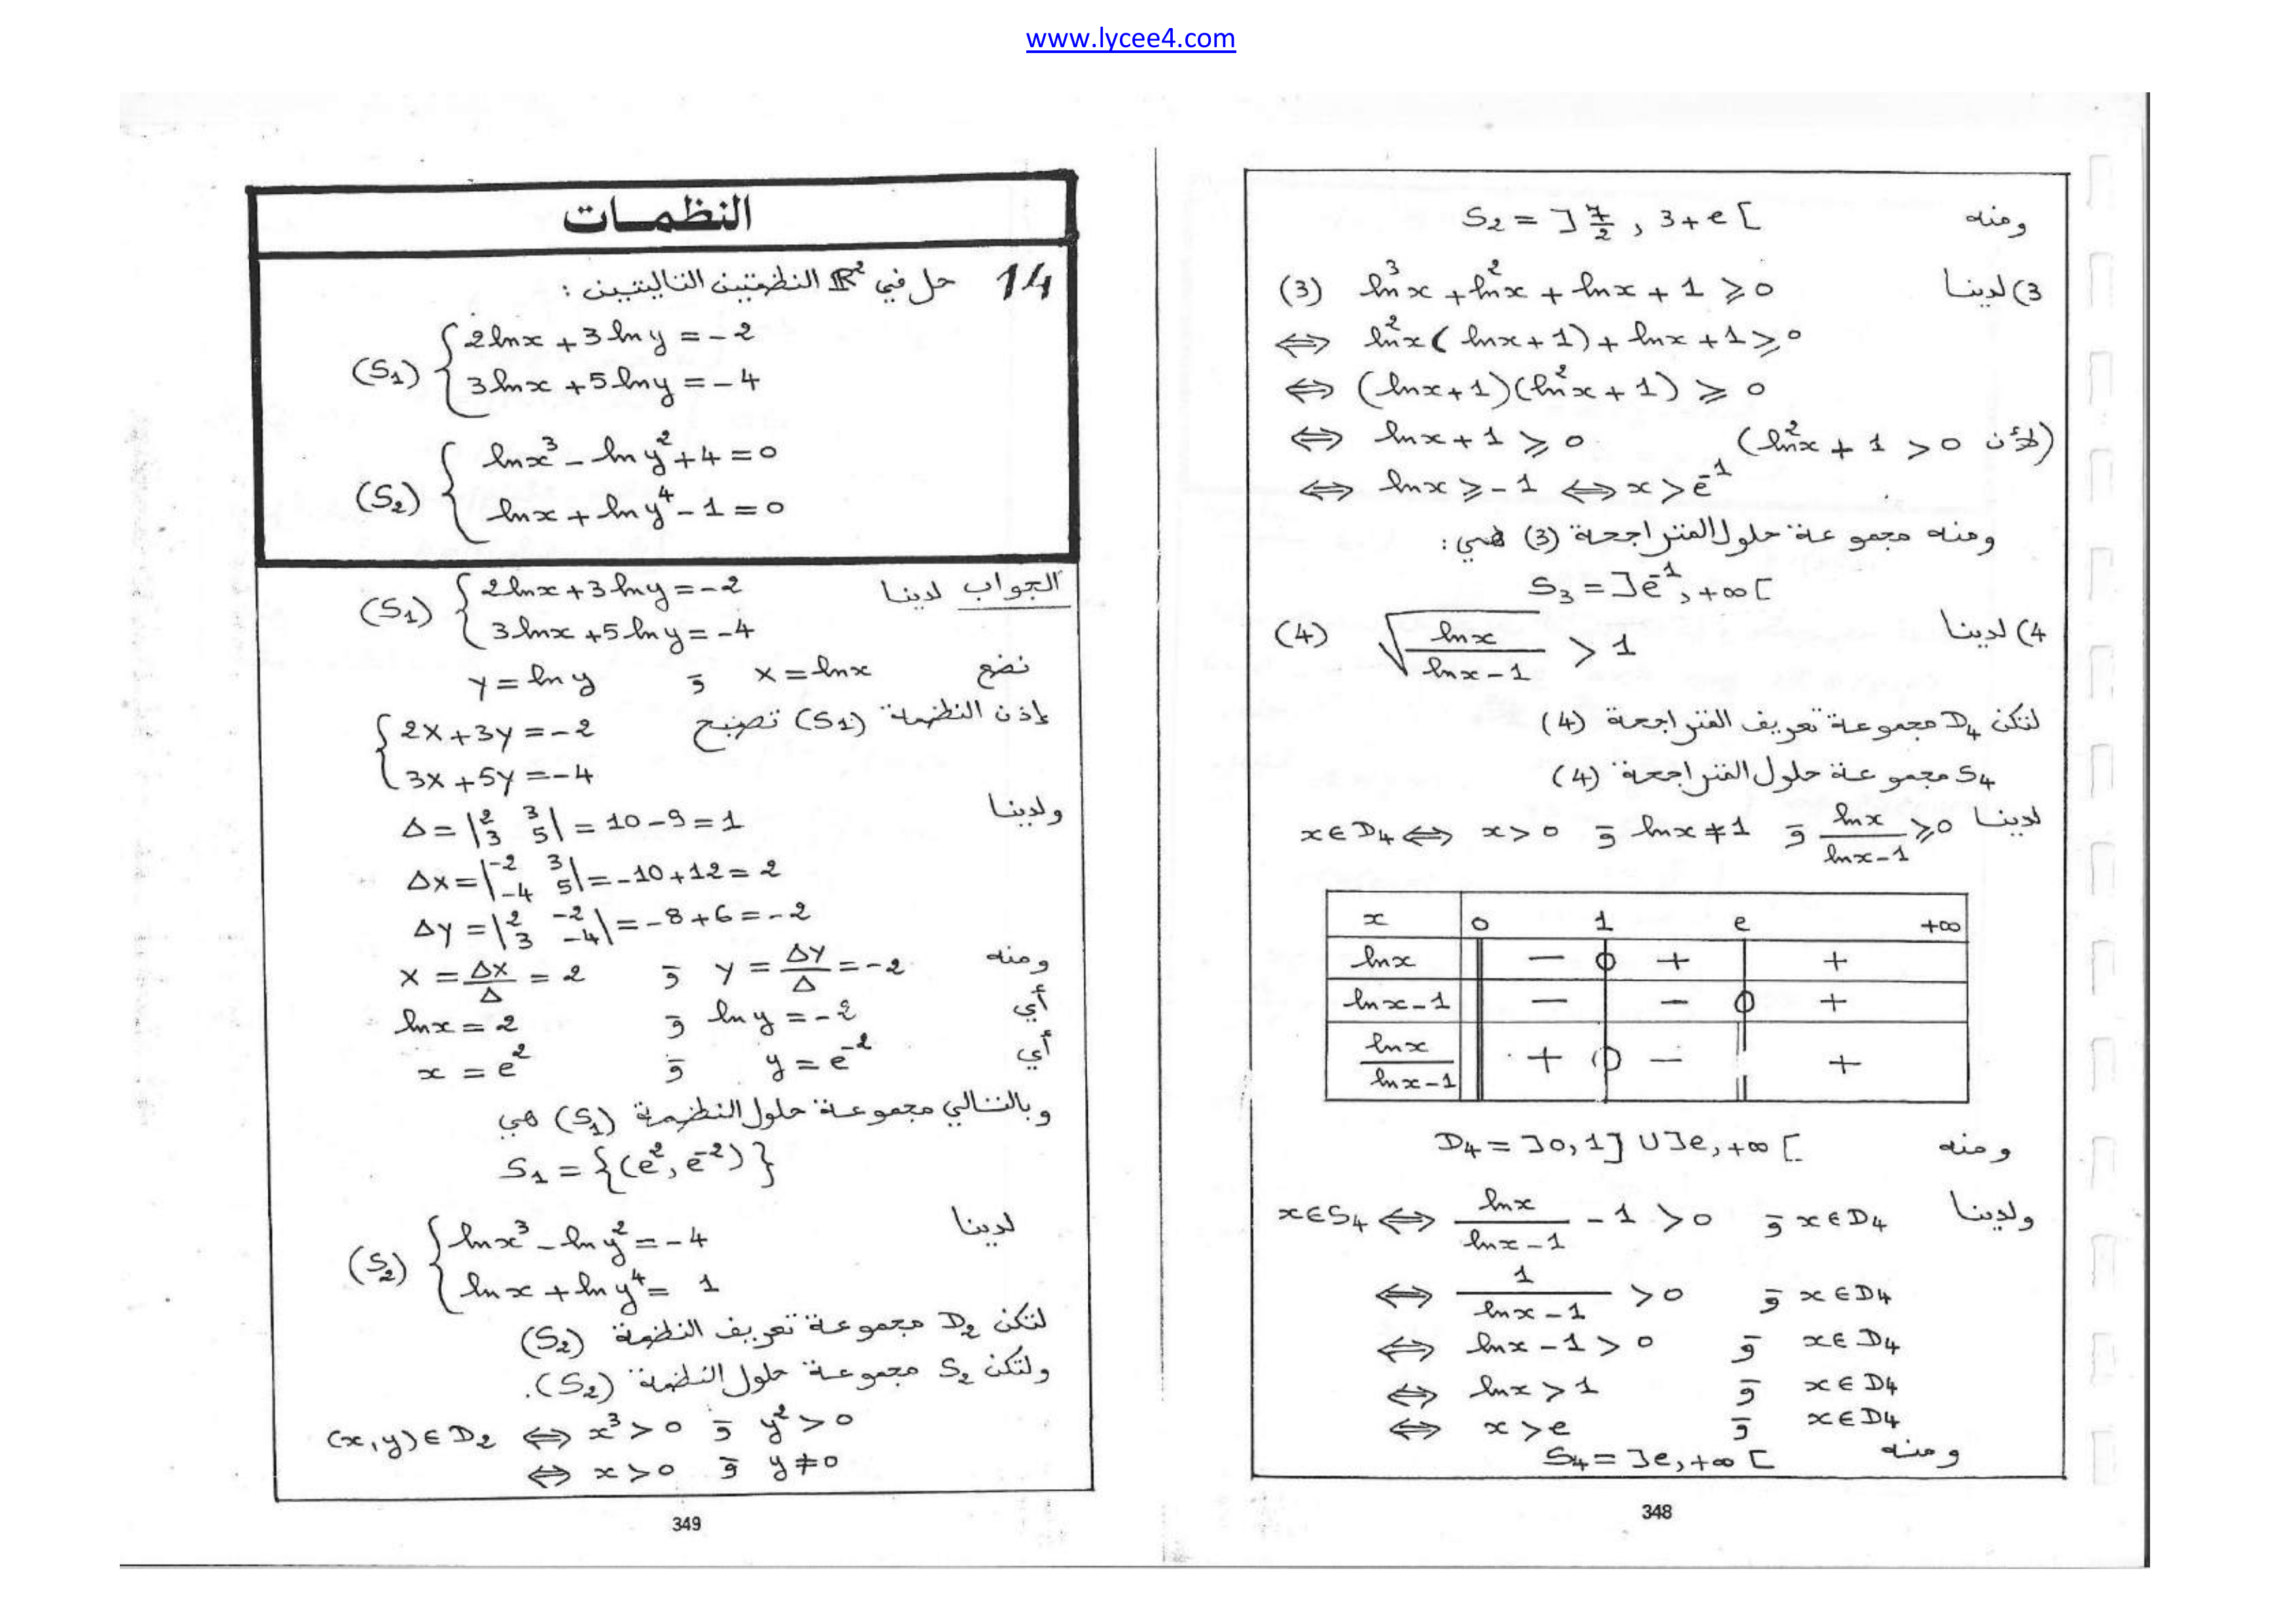 www.lycee4.com
ومنه S₂ = ]7/2 , 3+e[
3) لدينا ln³x + ln²x + lnx + 1 ⩾ 0 (3)
⇔ ln²x (lnx + 1) + lnx + 1 ⩾ 0
⇔ (lnx + 1)(ln²x + 1) ⩾ 0
⇔ lnx + 1 ⩾ 0 (لأن ln²x + 1 > 0)
⇔ lnx ⩾ -1 ⇔ x > e⁻¹
ومنه مجموعة حلول المتراجحة (3) هي:
S₃ = ]e⁻¹, +∞[
4) لدينا √(lnx/(lnx-1)) > 1 (4)
لتكن D₄ مجموعة تعريف المتراجحة (4)
S₄ مجموعة حلول المتراجحة (4)
لدينا x ∈ D₄ ⇔ x > 0 و lnx ≠ 1 و lnx/(lnx-1) ⩾ 0
x 0 1 e +∞
lnx - 0 + +
lnx-1 - - 0 +
lnx/(lnx-1) + 0 - +
ومنه D₄ = ]0, 1] ∪ ]e, +∞[
ولدينا x ∈ S₄ ⇔ lnx/(lnx-1) - 1 > 0 و x ∈ D₄
⇔ 1/(lnx-1) > 0 و x ∈ D₄
⇔ lnx - 1 > 0 و x ∈ D₄
⇔ lnx > 1 و x ∈ D₄
⇔ x > e و x ∈ D₄
ومنه S₄ = ]e, +∞[
348
النظمات
14 حل في ℝ² النظمتين التاليتين :
(S₁) { 2lnx + 3lny = -2
3lnx + 5lny = -4
(S₂) { lnx³ - lny² + 4 = 0
lnx + lny⁴ - 1 = 0
الجواب لدينا (S₁) { 2lnx + 3lny = -2
3lnx + 5lny = -4
نضع X = lnx و Y = lny
إذن النظمة (S₁) تصبح { 2X + 3Y = -2
3X + 5Y = -4
ولدينا Δ = |2 3; 3 5| = 10 - 9 = 1
Δx = |-2 3; -4 5| = -10 + 12 = 2
Δy = |2 -2; 3 -4| = -8 + 6 = -2
ومنه X = Δx/Δ = 2 و Y = Δy/Δ = -2
أي lnx = 2 و lny = -2
أي x = e² و y = e⁻²
وبالتالي مجموعة حلول النظمة (S₁) هي
S₁ = {(e², e⁻²)}
لدينا (S₂) { lnx³ - lny² = -4
lnx + lny⁴ = 1
لتكن D₂ مجموعة تعريف النظمة (S₂)
ولتكن S₂ مجموعة حلول النظمة (S₂).
(x, y) ∈ D₂ ⇔ x³ > 0 و y² > 0
⇔ x > 0 و y ≠ 0
349